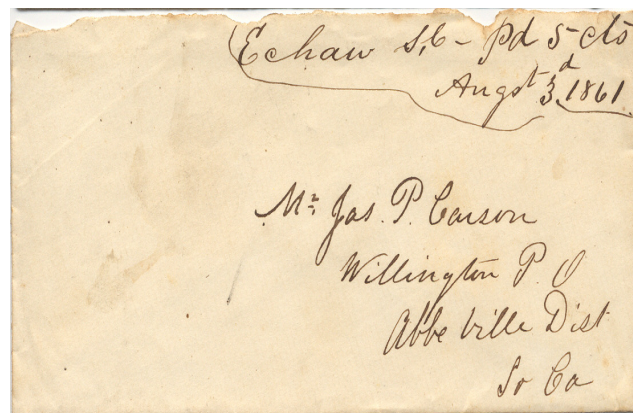 Echaw S,C - Pd 5 cts
Augst 3d 1861
Mr Jas. P. Carson
Willington P. O
Abbeville Dist
So Ca